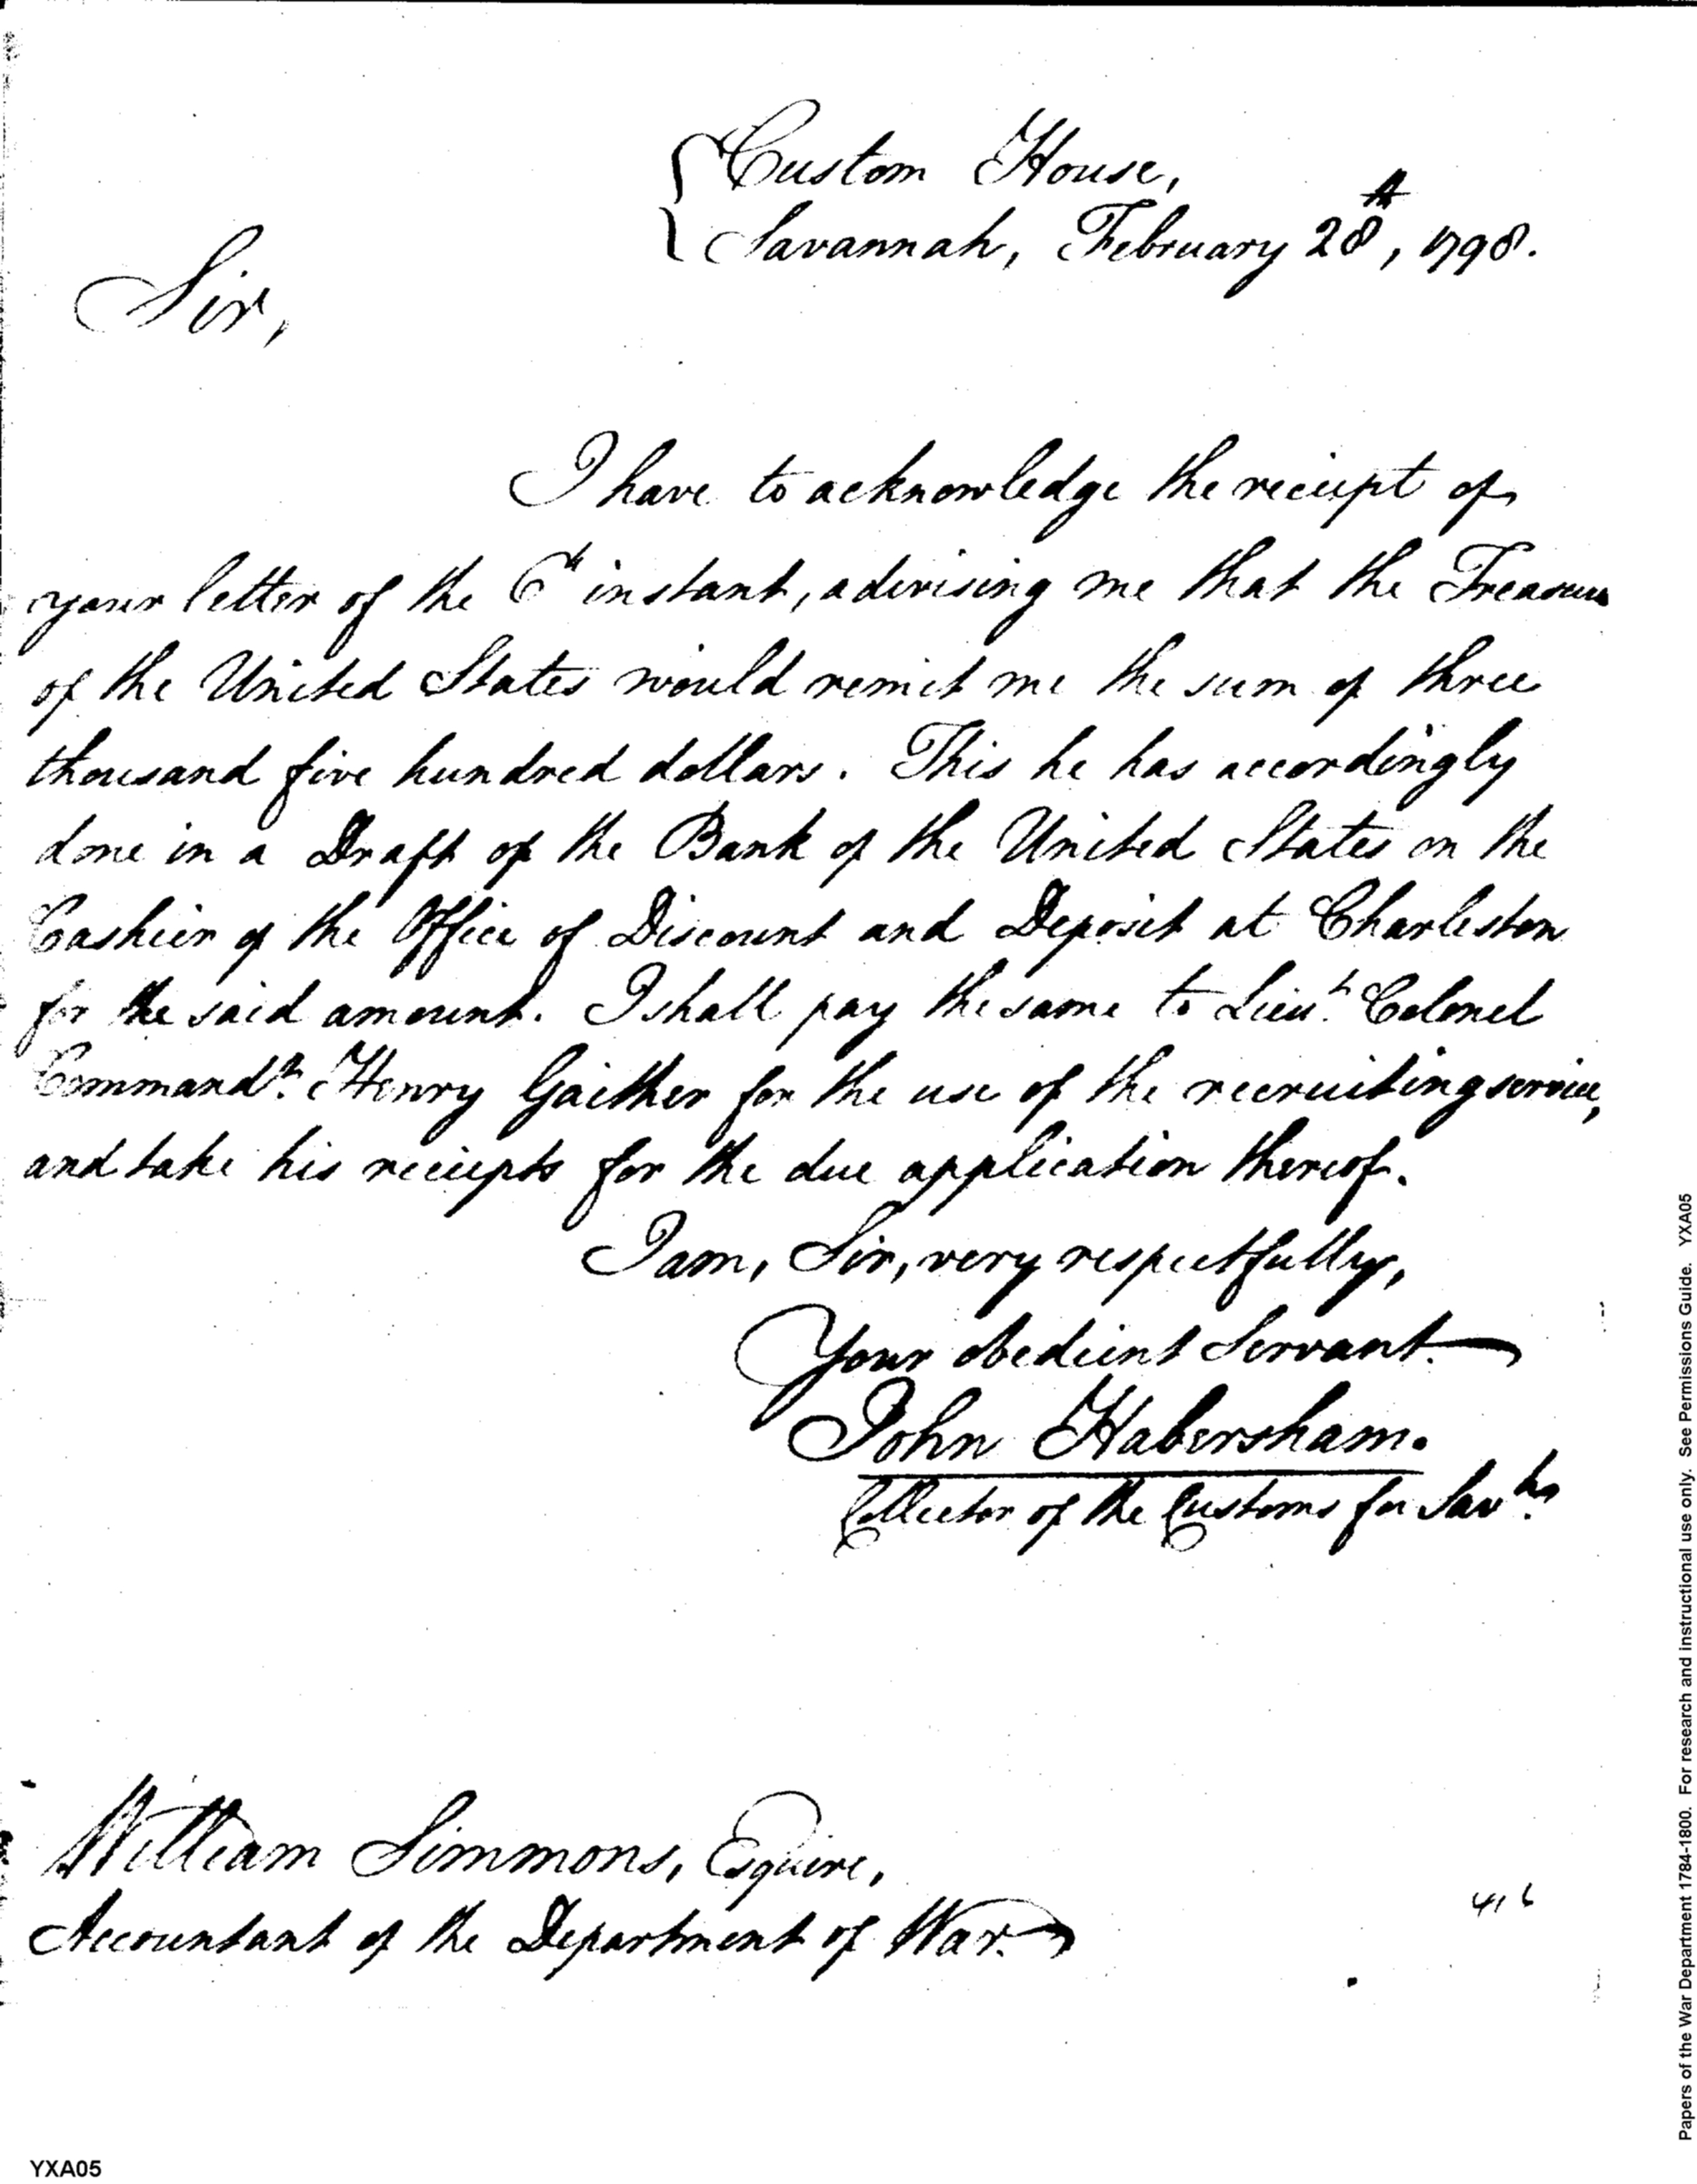 Custom House,
Savannah, February 28th, 1798.
Sir,
I have to acknowledge the receipt of
your letter of the 6th instant, advising me that the Treasurer
of the United States would remit me the sum of three
thousand five hundred dollars. This he has accordingly
done in a Draft of the Bank of the United States on the
Cashier of the Office of Discount and Deposit at Charleston
for the said amount. I shall pay the same to Lieut. Colonel
Commandt. Henry Gaither for the use of the recruiting service,
and take his receipts for the due application thereof.
I am, Sir, very respectfully,
Your obedient Servant.
John Habersham.
Collector of the Customs for Savh.
William Simmons, Esquire,
Accountant of the Department of War.
416
YXA05
Papers of the War Department 1784-1800. For research and instructional use only. See Permissions Guide. YXA05